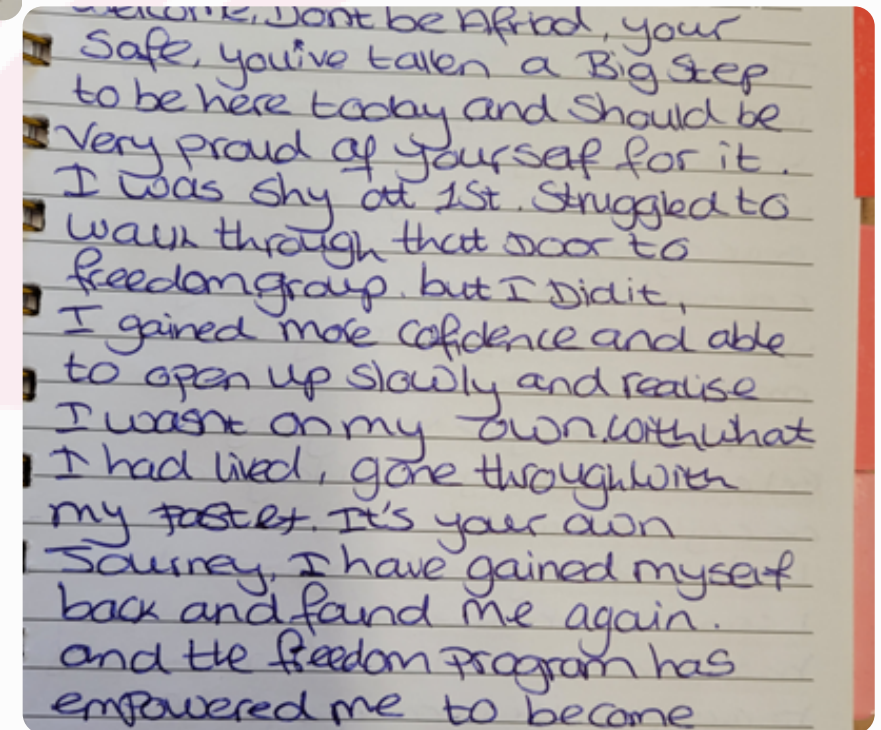 welcome, Dont be Afriad, your
Safe, you'ive taken a Big Step
to be here today and should be
Very proud of yourself for it.
I was shy at 1st. Struggled to
walk through that Door to
freedom group. but I Did it,
I gained more cofidence and able
to open up slowly and realise
I wasnt on my own, with what
I had lived, gone through with
my
It's your own
Journey, I have gained myself
back and found me again.
and the freedom program has
empowered me to become